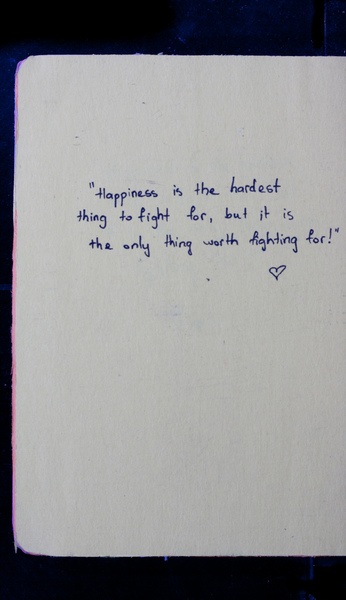 "Happiness is the hardest
thing to fight for, but it is
the only thing worth fighting for!"